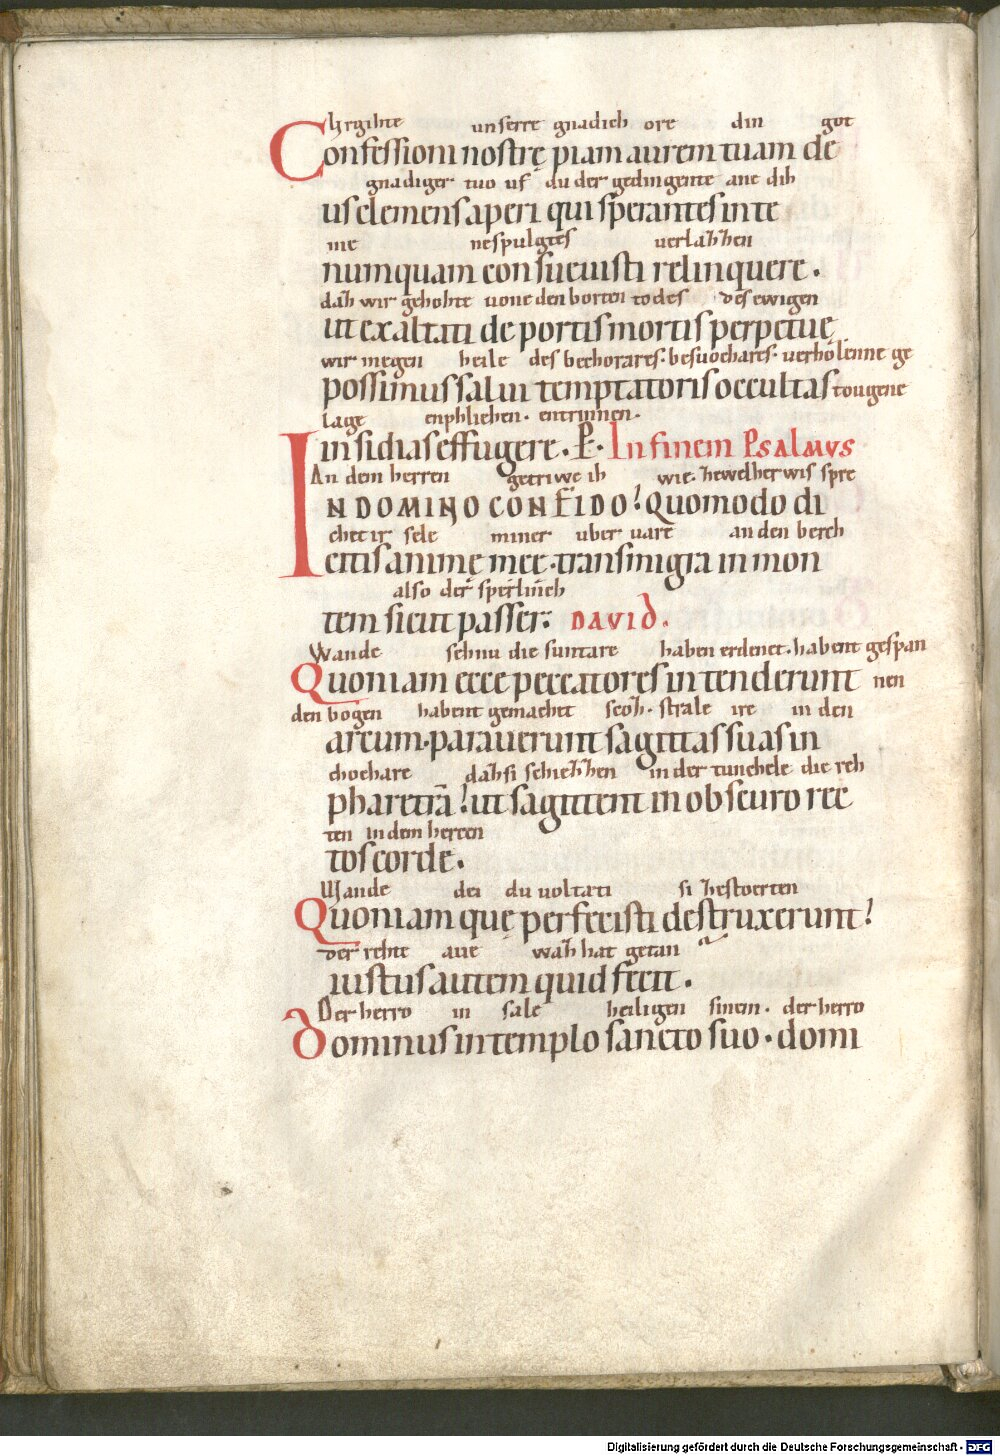 hrgihte unserre gnadich ore din got
Confessioni nostrę piam aurem tuam de
gnadiger tuo uf du der gedingente ane dih
us clemens aperi qui sperantes in te
nie nespulgtes uerlahhen
numquam consueuisti relinquere.
dah wir gehohte uone den borten todes des ewigen
ut exaltati de portis mortis perpetuę
wir megen heile des bechorares. besuochares. uerholenne ge
possimus salui temptatoris occultas tougene
lage enphliehen. entrinnen.
insidias effugere. P. In finem Psalmus
An dem herren getriwe ih wie. hewdher wis spre
IN DOMINO CONFIDO! Quomodo di
chet ir sele miner uber uare an den berch
citis animę meę. transmigra in mon
also der sperlinch
tem sicut passer: DAVID.
Wande sehnu die suntare haben erdenet. habent gespan
Quoniam ecce peccatores intenderunt nen
den bogen habent gemachet scoh. strale ire in den
arcum. parauerunt sagittas suas in
chochare dah si schiehhen in der tunchele die reh
pharetrā! ut sagittent in obscuro rec
ten in dem hercen
tos corde.
Wande dei du uoltati si hestoerten
Quoniam quę perfecisti destruxerunt!
der rehte aue wah hat getan
iustus autem quid fecit.
Der herro in sale heiligen sinem. der herro
Dominus in templo sancto suo. domi
Digitalisierung gefördert durch die Deutsche Forschungsgemeinschaft - DFG